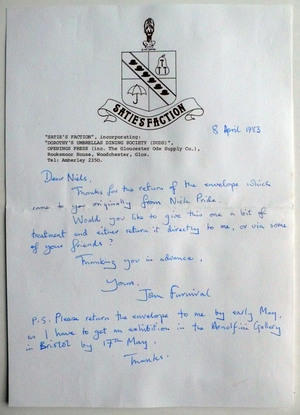 SATIE'S FACTION
8 April 1983
"SATIE'S FACTION", incorporating:
"DOROTHY'S UMBRELLAS DINING SOCIETY (DUDS)",
OPENINGS PRESS (inc. The Gloucester Ode Supply Co.),
Rooksmoor House, Woodchester, Glos.
Tel: Amberley 2350.
Dear Niels,
Thanks for the return of the envelope which
came to you originally from Nick Pride.
Would you like to give this one a bit of
treatment and either return it directly to me, or via some
of your friends?
Thanking you in advance,
Yours,
John Furnival
P.S. Please return the envelope to me by early May,
as I have to get an exhibition in the Arnolfini Gallery
in Bristol by 17th May.
Thanks.